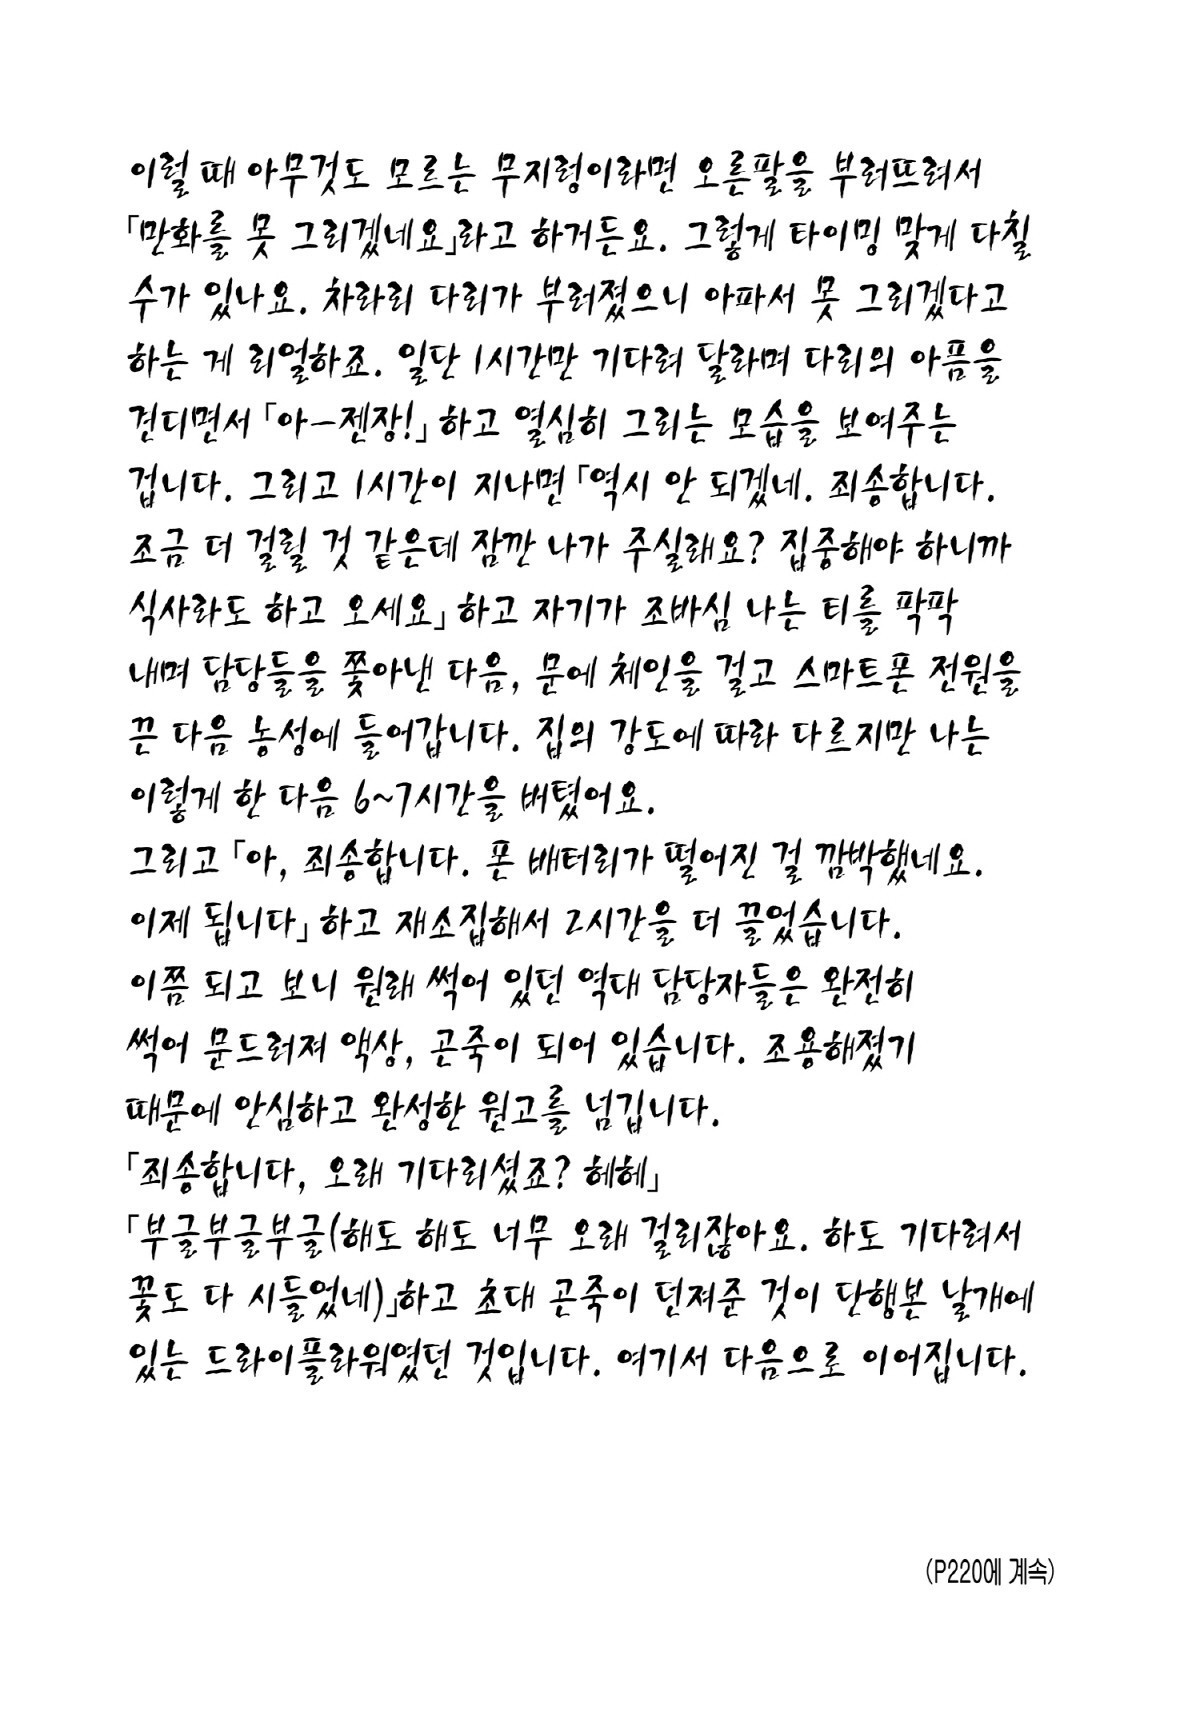 이럴 때 아무것도 모르는 무지렁이라면 오른팔을 부러뜨려서
「만화를 못 그리겠네요」라고 하거든요. 그렇게 타이밍 맞게 다칠
수가 있나요. 차라리 다리가 부러졌으니 아파서 못 그리겠다고
하는 게 리얼하죠. 일단 1시간만 기다려 달라며 다리의 아픔을
견디면서 「아－젠장!」 하고 열심히 그리는 모습을 보여주는
겁니다. 그리고 1시간이 지나면 「역시 안 되겠네. 죄송합니다.
조금 더 걸릴 것 같은데 잠깐 나가 주실래요? 집중해야 하니까
식사라도 하고 오세요」 하고 자기가 조바심 나는 티를 팍팍
내며 담당들을 쫓아낸 다음, 문에 체인을 걸고 스마트폰 전원을
끈 다음 농성에 들어갑니다. 집의 강도에 따라 다르지만 나는
이렇게 한 다음 6~7시간을 버텼어요.
그리고 「아, 죄송합니다. 폰 배터리가 떨어진 걸 깜박했네요.
이제 됩니다」 하고 재소집해서 2시간을 더 끌었습니다.
이쯤 되고 보니 원래 썩어 있던 역대 담당자들은 완전히
썩어 문드러져 액상, 곤죽이 되어 있습니다. 조용해졌기
때문에 안심하고 완성한 원고를 넘깁니다.
「죄송합니다, 오래 기다리셨죠? 헤헤」
「부글부글부글(해도 해도 너무 오래 걸리잖아요. 하도 기다려서
꽃도 다 시들었네)」하고 초대 곤죽이 던져준 것이 단행본 날개에
있는 드라이플라워였던 것입니다. 여기서 다음으로 이어집니다.
(P220에 계속)